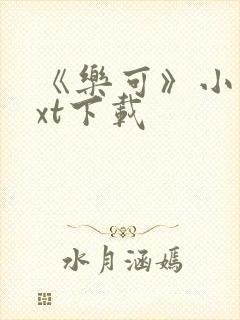 《樂可》小
xt下載
水月涵嫣